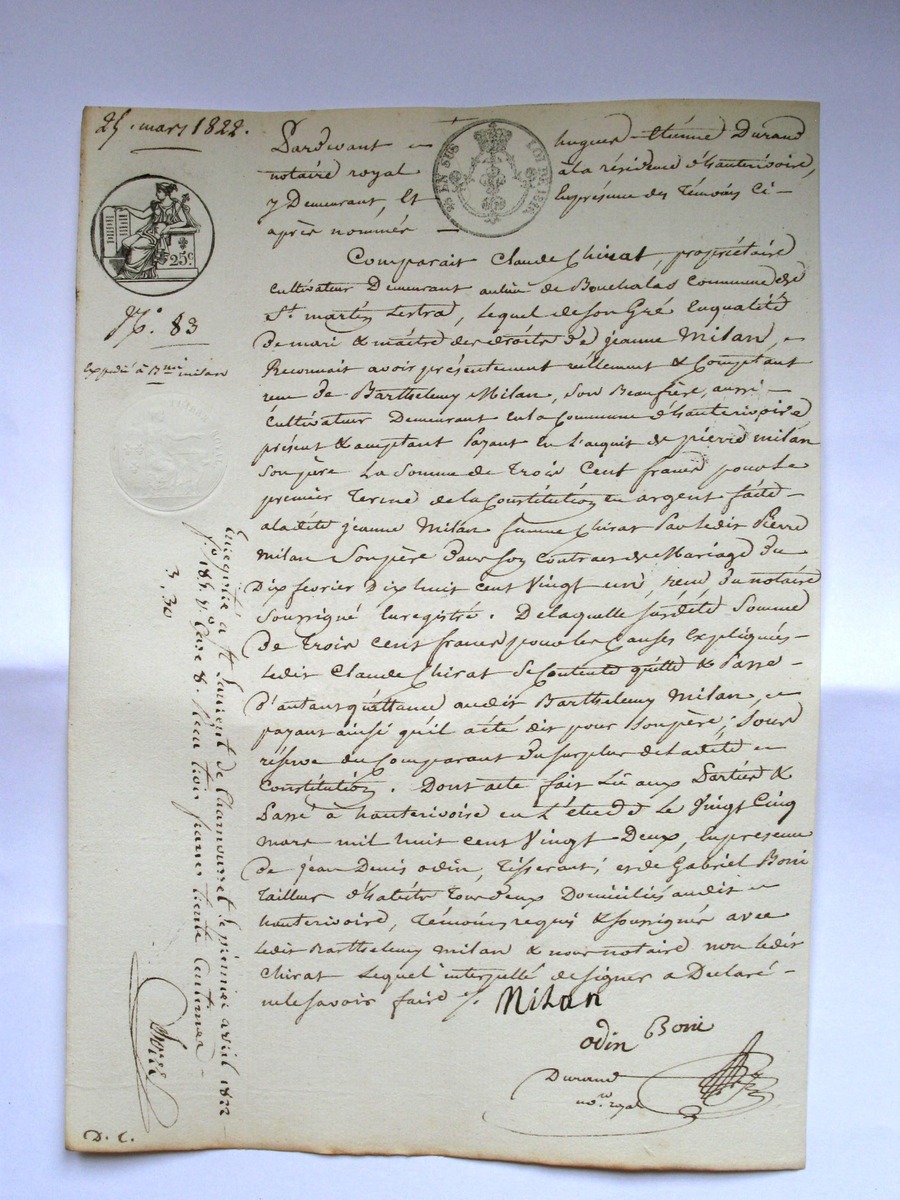 25. mars 1822.
Pardevant hugues Etienne Durand
notaire royal a la résidence d'hauterivoire,
y Demeurant, Et En présence des Témoins Ci-
après nommés
EN SUS LOI DE 1816
25c
N.o 83
Expédié à B.mi milan
Comparait Claude Chirat, propriétaire
cultivateur Demeurant au lieu de Bouchalas Commune de
St. martin Lestra, lequel de Son Gré En qualité
De mari & maître des droits de jeanne Milan,
Reconnait avoir présentement réllement & Comptant
reçu de Barthelemy Milan, Son Beaufrère, aussi
cultivateur Demeurant En la Commune d'hauterivoire
présent & acceptant Payant En l'acquit de pierre milan
Son père La Somme de Trois Cent francs pour le
premier Terme de la Constitution en argent faite
a la dite jeanne Milan femme Chirat Par ledit Pierre
milan Son père Dans Son contrat de Mariage du
Dix fevrier Dix huit cent Vingt un, reçu du notaire
Soussigné Enregistré. De laquelle Susdite Somme
De Trois cent francs pour les Causes Expliqués
ledit Claude Chirat Se Contente quitte & Passe
D'autant quittance audit Barthelemy Milan,
payant ainsi qu'il a été dit pour Son père; Sous
réserve du Comparant Du Surplus de la dite
Constitution. Dont acte fait Lû aux Parties &
Passé à hauterivoire en L'étude Le Vingt Cinq
mars mil huit cent Vingt-Deux, En présence
De jean Denis odin, Tisserant, et de Gabriel Boni
Tailleur d'habits Tous deux Domiciliés audit
hauterivoire, Témoins requis & Soussignés avec
ledit Barthelemy milan & nous notaire non ledit
Chirat Lequel interpellé de signer a Déclaré
ne le Savoir faire ./.
Milan
odin Boni
Durand
no.re royal
Enregistré à St Laurent de Chamousset le premier avril 1822
f.o 185 v.o Case 8. Reçu trois francs trente centimes
3,30
D. C.